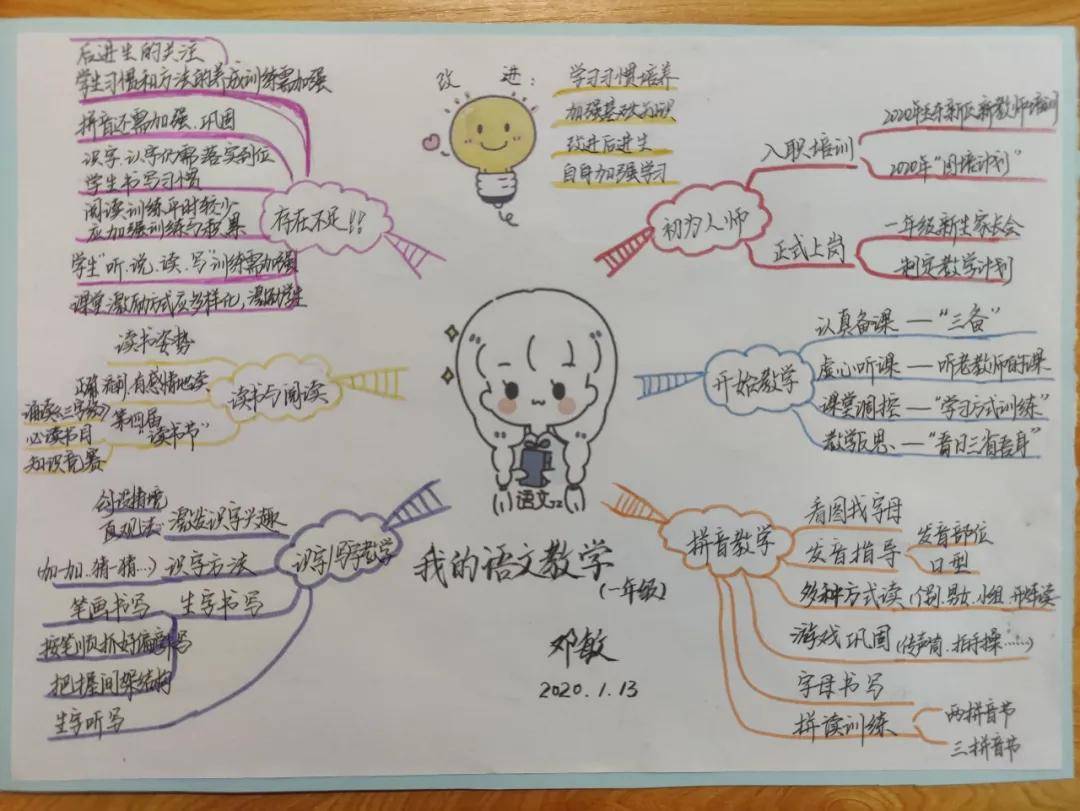 后进生的关注
学生习惯和方法的养成训练需加强
拼音还需加强、巩固
识字、认字仍需落实到位
学生书写习惯
阅读训练平时较少
应加强训练与积累
学生"听、说、读、写"训练需加强
课堂激励方式应多样化,激励学生
存在不足!!
改进:
学习习惯培养
加强基础知识
改进后进生
自身加强学习
初为人师
入职培训
2020年 新区新教师培训
2020年"国培计划"
正式上岗
一年级新生家长会
制定教学计划
读书与阅读
读书姿势
正确、流利、有感情地读
第四届
"读书节"
诵读《三字经》
必读书目
知识竞赛
开始教学
认真备课—"三备"
虚心听课—听老教师的课
课堂调控—"学习方式训练"
教学反思—"吾日三省吾身"
语文
我的语文教学
(一年级)
邓敏
2020.1.13
识字/写字教学
创设情境
直观法
激发识字兴趣
(加一加、猜一猜…)识字方法
笔画书写
生字书写
按笔顺、抓好偏旁书写
把握间架结构
生字听写
拼音教学
看图找字母
发音指导
发音部位
口型
多种方式读(个别、男女、小组、开火车读
游戏巩固(传声筒、拍手操……)
字母书写
拼读训练
两拼音节
三拼音节